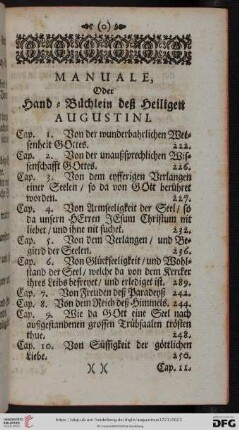 (o)
MANUALE,
Oder
Hand-Büchlein deß Heiligen
AUGUSTINI.
Cap. 1. Von der wunderbahrlichen We-
senheit GOttes. 222.
Cap. 2. Von der unaußsprechlichen Wis-
senschafft GOttes. 226.
Cap. 3. Von dem eyfferigen Verlangen
einer Seelen / so da von GOtt berühret
worden. 227.
Cap. 4. Von Armseeligkeit der Seel / so
da unsern HErren JEsum Christum nit
liebet / und ihne nit suchet. 232.
Cap. 5. Von dem Verlangen / und Be-
gierd der Seelen. 236.
Cap. 6. Von Glückseeligkeit / und Wohl-
stand der Seel / welche da von dem Kercker
ihres Leibs befreyet / und erlediget ist. 289.
Cap. 7. Von Freuden deß Paradeyß. 242.
Cap. 8. Von dem Reich deß Himmels. 244.
Cap. 9. Wie da GOtt eine Seel nach
außgestandenen grossen Trübsaalen trösten
thue. 248.
Cap. 10. Von Süssigkeit der göttlichen
Liebe. 250.
XX Cap. 11.